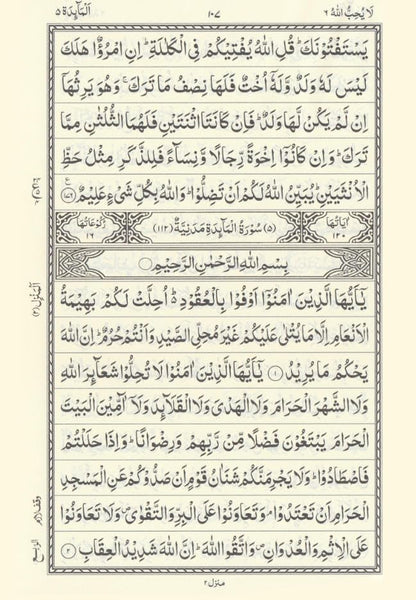 لَا يُحِبُّ اللهُ ٦
١٠٧
اَلْمَآئِدَة ٥
يَسْتَفْتُوْنَكَ ؕ قُلِ اللّٰهُ يُفْتِيْكُمْ فِى الْكَلٰلَةِ ؕ اِنِ امْرُؤٌا هَلَكَ
لَيْسَ لَهٗ وَلَدٌ وَّلَهٗۤ اُخْتٌ فَلَهَا نِصْفُ مَا تَرَكَ ۚ وَهُوَ يَرِثُهَاۤ
اِنْ لَّمْ يَكُنْ لَّهَا وَلَدٌ ؕ فَاِنْ كَانَتَا اثْنَتَيْنِ فَلَهُمَا الثُّلُثٰنِ مِمَّا
تَرَكَ ؕ وَاِنْ كَانُوْۤا اِخْوَةً رِّجَالًا وَّنِسَآءً فَلِلذَّكَرِ مِثْلُ حَظِّ
الْاُنْثَيَيْنِ ؕ يُبَيِّنُ اللّٰهُ لَكُمْ اَنْ تَضِلُّوْا ؕ وَاللّٰهُ بِكُلِّ شَىْءٍ عَلِيْمٌ ﴿۱۷۶﴾
اٰيَاتُهَا ١٢٠
(٥) سُوْرَةُ الْمَآئِدَةِ مَدَنِيَّةٌ (١١٢)
رُكُوْعَاتُهَا ١٦
بِسْمِ اللّٰهِ الرَّحْمٰنِ الرَّحِيْمِ
يٰۤاَيُّهَا الَّذِيْنَ اٰمَنُوْۤا اَوْفُوْا بِالْعُقُوْدِ ؕ اُحِلَّتْ لَكُمْ بَهِيْمَةُ
الْاَنْعَامِ اِلَّا مَا يُتْلٰى عَلَيْكُمْ غَيْرَ مُحِلِّى الصَّيْدِ وَاَنْتُمْ حُرُمٌ ؕ اِنَّ اللّٰهَ
يَحْكُمُ مَا يُرِيْدُ ﴿۱﴾ يٰۤاَيُّهَا الَّذِيْنَ اٰمَنُوْا لَا تُحِلُّوْا شَعَآئِرَ اللّٰهِ
وَلَا الشَّهْرَ الْحَرَامَ وَلَا الْهَدْىَ وَلَا الْقَلَآئِدَ وَلَاۤ آٰمِّيْنَ الْبَيْتَ
الْحَرَامَ يَبْتَغُوْنَ فَضْلًا مِّنْ رَّبِّهِمْ وَرِضْوَانًا ؕ وَاِذَا حَلَلْتُمْ
فَاصْطَادُوْا ؕ وَلَا يَجْرِمَنَّكُمْ شَنَاٰنُ قَوْمٍ اَنْ صَدُّوْكُمْ عَنِ الْمَسْجِدِ
الْحَرَامِ اَنْ تَعْتَدُوْا ۘ وَتَعَاوَنُوْا عَلَى الْبِرِّ وَالتَّقْوٰى ۪ وَلَا تَعَاوَنُوْا
عَلَى الْاِثْمِ وَالْعُدْوَانِ ۪ وَاتَّقُوا اللّٰهَ ؕ اِنَّ اللّٰهَ شَدِيْدُ الْعِقَابِ ﴿۲﴾
اَلْمَنْزِلُ (٢)
وقف لازم
الربع
منزل ٢